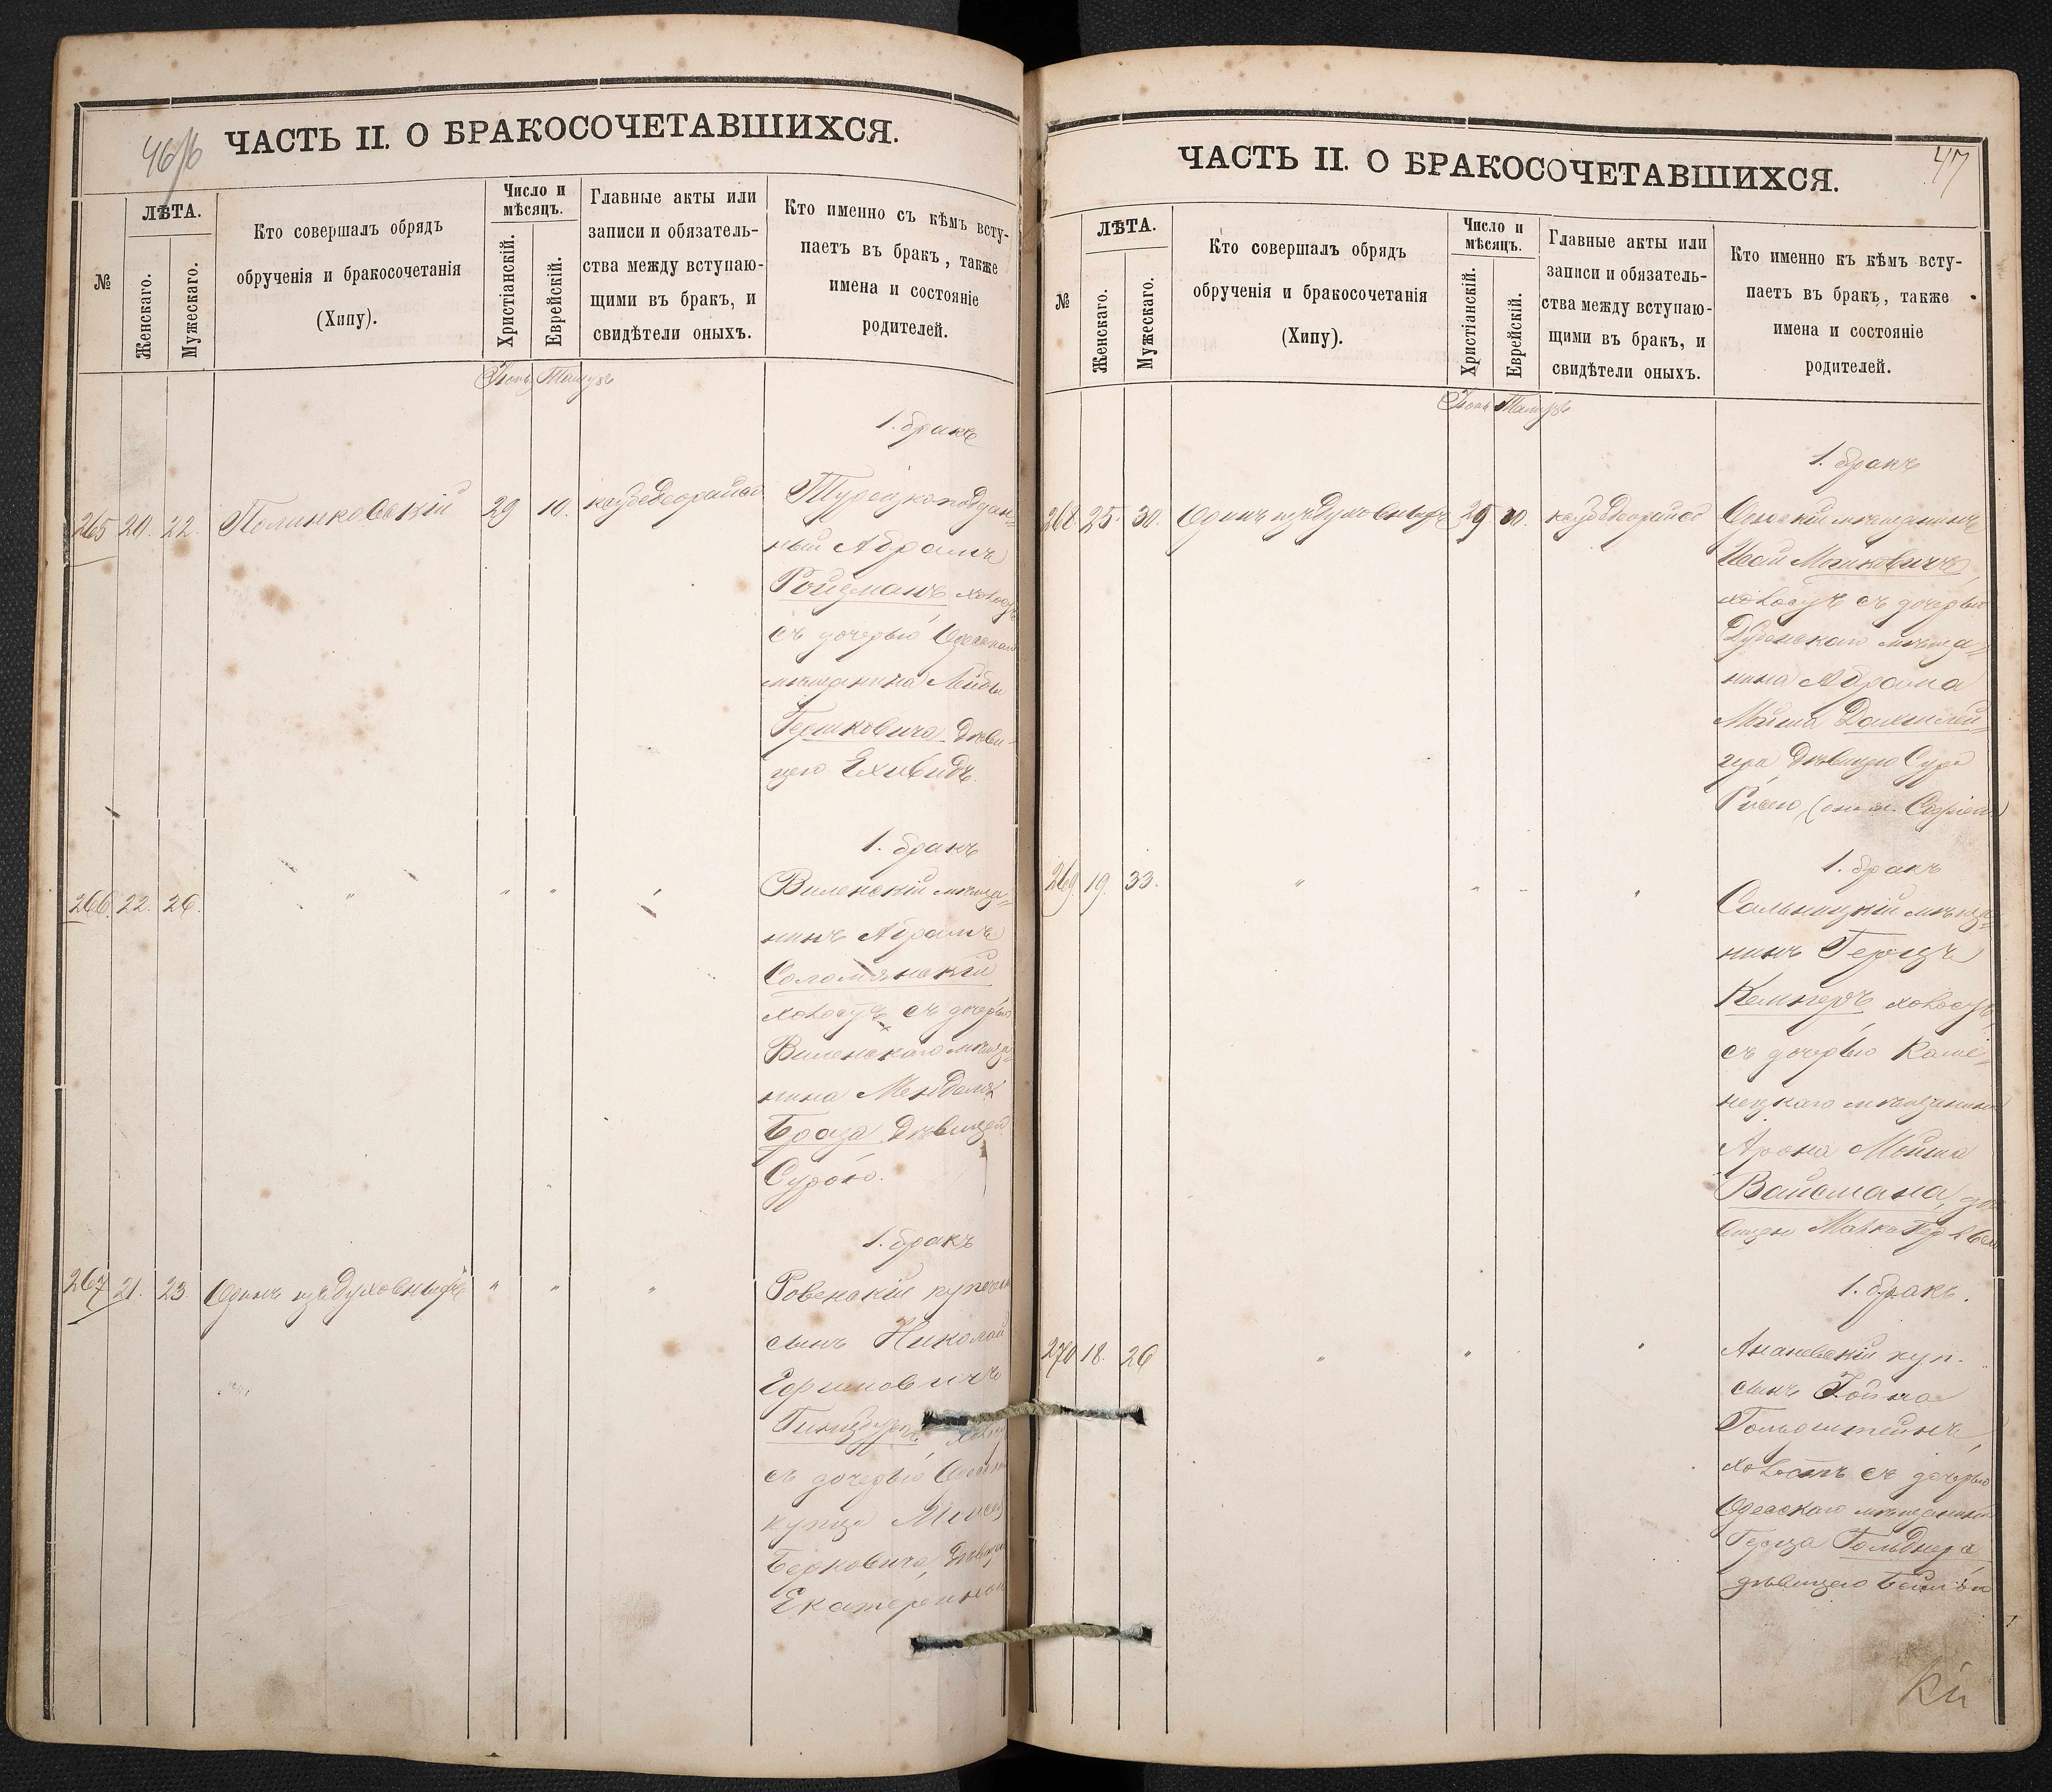 46/б
ЧАСТЬ II. О БРАКОСОЧЕТАВШИХСЯ.
№
ЛѢТА.
Женскаго.
Мужескаго.
Кто совершалъ обрядъ
обрученія и бракосочетанія
(Хипу).
Число и
мѣсяцъ.
Христіанскій.
Еврейскій.
Главные акты или
записи и обязатель-
ства между вступаю-
щими въ бракъ, и
свидѣтели оныхъ.
Кто именно съ кѣмъ всту-
паетъ въ бракъ, также
имена и состояніе
родителей.
Іюнь Тамузъ
1. бракъ
265 20. 22. Полинковскій 29 10.
Турецкоподдан-
ный Абрамъ
Ройзманъ холост
съ дочерью Одесскаго
мѣщанина Лейбы
Гершковича дѣви-
цею Ехивидъ.
1. бракъ
266. 22. 26. " " " "
Виленскій мѣща-
нинъ Абрамъ
Соломянскій
холостъ съ дочерью
Виленскаго мѣща-
нина Менделя
Брода дѣвицею
Сурою.
1. бракъ
267 21. 23. Одинъ изъ духовныхъ " " "
Ровенскій купеч
сынъ Николай
Ефимовичъ
Гинцбургъ, холост
съ дочерью Одесск
купца Моисея
Берковича, дѣвицею
Екатериной
47
ЧАСТЬ II. О БРАКОСОЧЕТАВШИХСЯ.
№
ЛѢТА.
Женскаго.
Мужескаго.
Кто совершалъ обрядъ
обрученія и бракосочетанія
(Хипу).
Число и
мѣсяцъ.
Христіанскій.
Еврейскій.
Главные акты или
записи и обязатель-
ства между вступаю-
щими въ бракъ, и
свидѣтели оныхъ.
Кто именно къ кѣмъ всту-
паетъ въ бракъ, также
имена и состояніе
родителей.
Іюнь Тамузъ
1. бракъ
268 25. 30. Одинъ изъ духовныхъ 29 10.
мѣщанинъ
Мошковичъ,
холостъ съ дочерью
Дубенскаго мѣща-
нина Абрама
Мойша
дѣвицею Сура
1. бракъ
269. 19. 33. " " - "
Сальницкій мѣща-
нинъ Герцъ
Кемперъ холостъ,
съ дочерью Каме-
нецкаго мѣщанина
Арона Мойша
Вайсмана, дѣ
вицею
1. бракъ.
270 18. 26 " " "
Ананьевскій куп.
сынъ Гойна
Гольдштейнъ,
холостъ съ дочерью
Одесскаго мѣщанина
Герца Гольднера
дѣвицею Бейлою